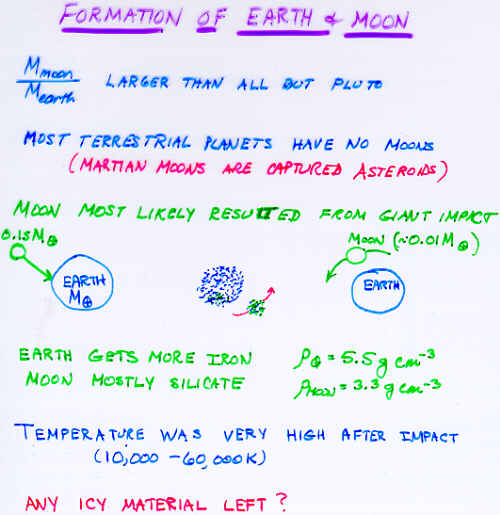 FORMATION OF EARTH & MOON
Mmoon
Mearth
LARGER THAN ALL BUT PLUTO
MOST TERRESTRIAL PLANETS HAVE NO MOONS
(MARTIAN MOONS ARE CAPTURED ASTEROIDS)
MOON MOST LIKELY RESULTED FROM GIANT IMPACT
0.15M⊕
MOON (~0.01M⊕)
EARTH
M⊕
EARTH
EARTH GETS MORE IRON
ρ⊕ = 5.5 g cm⁻³
MOON MOSTLY SILICATE
ρMOON = 3.3 g cm⁻³
TEMPERATURE WAS VERY HIGH AFTER IMPACT
(10,000 – 60,000K)
ANY ICY MATERIAL LEFT?